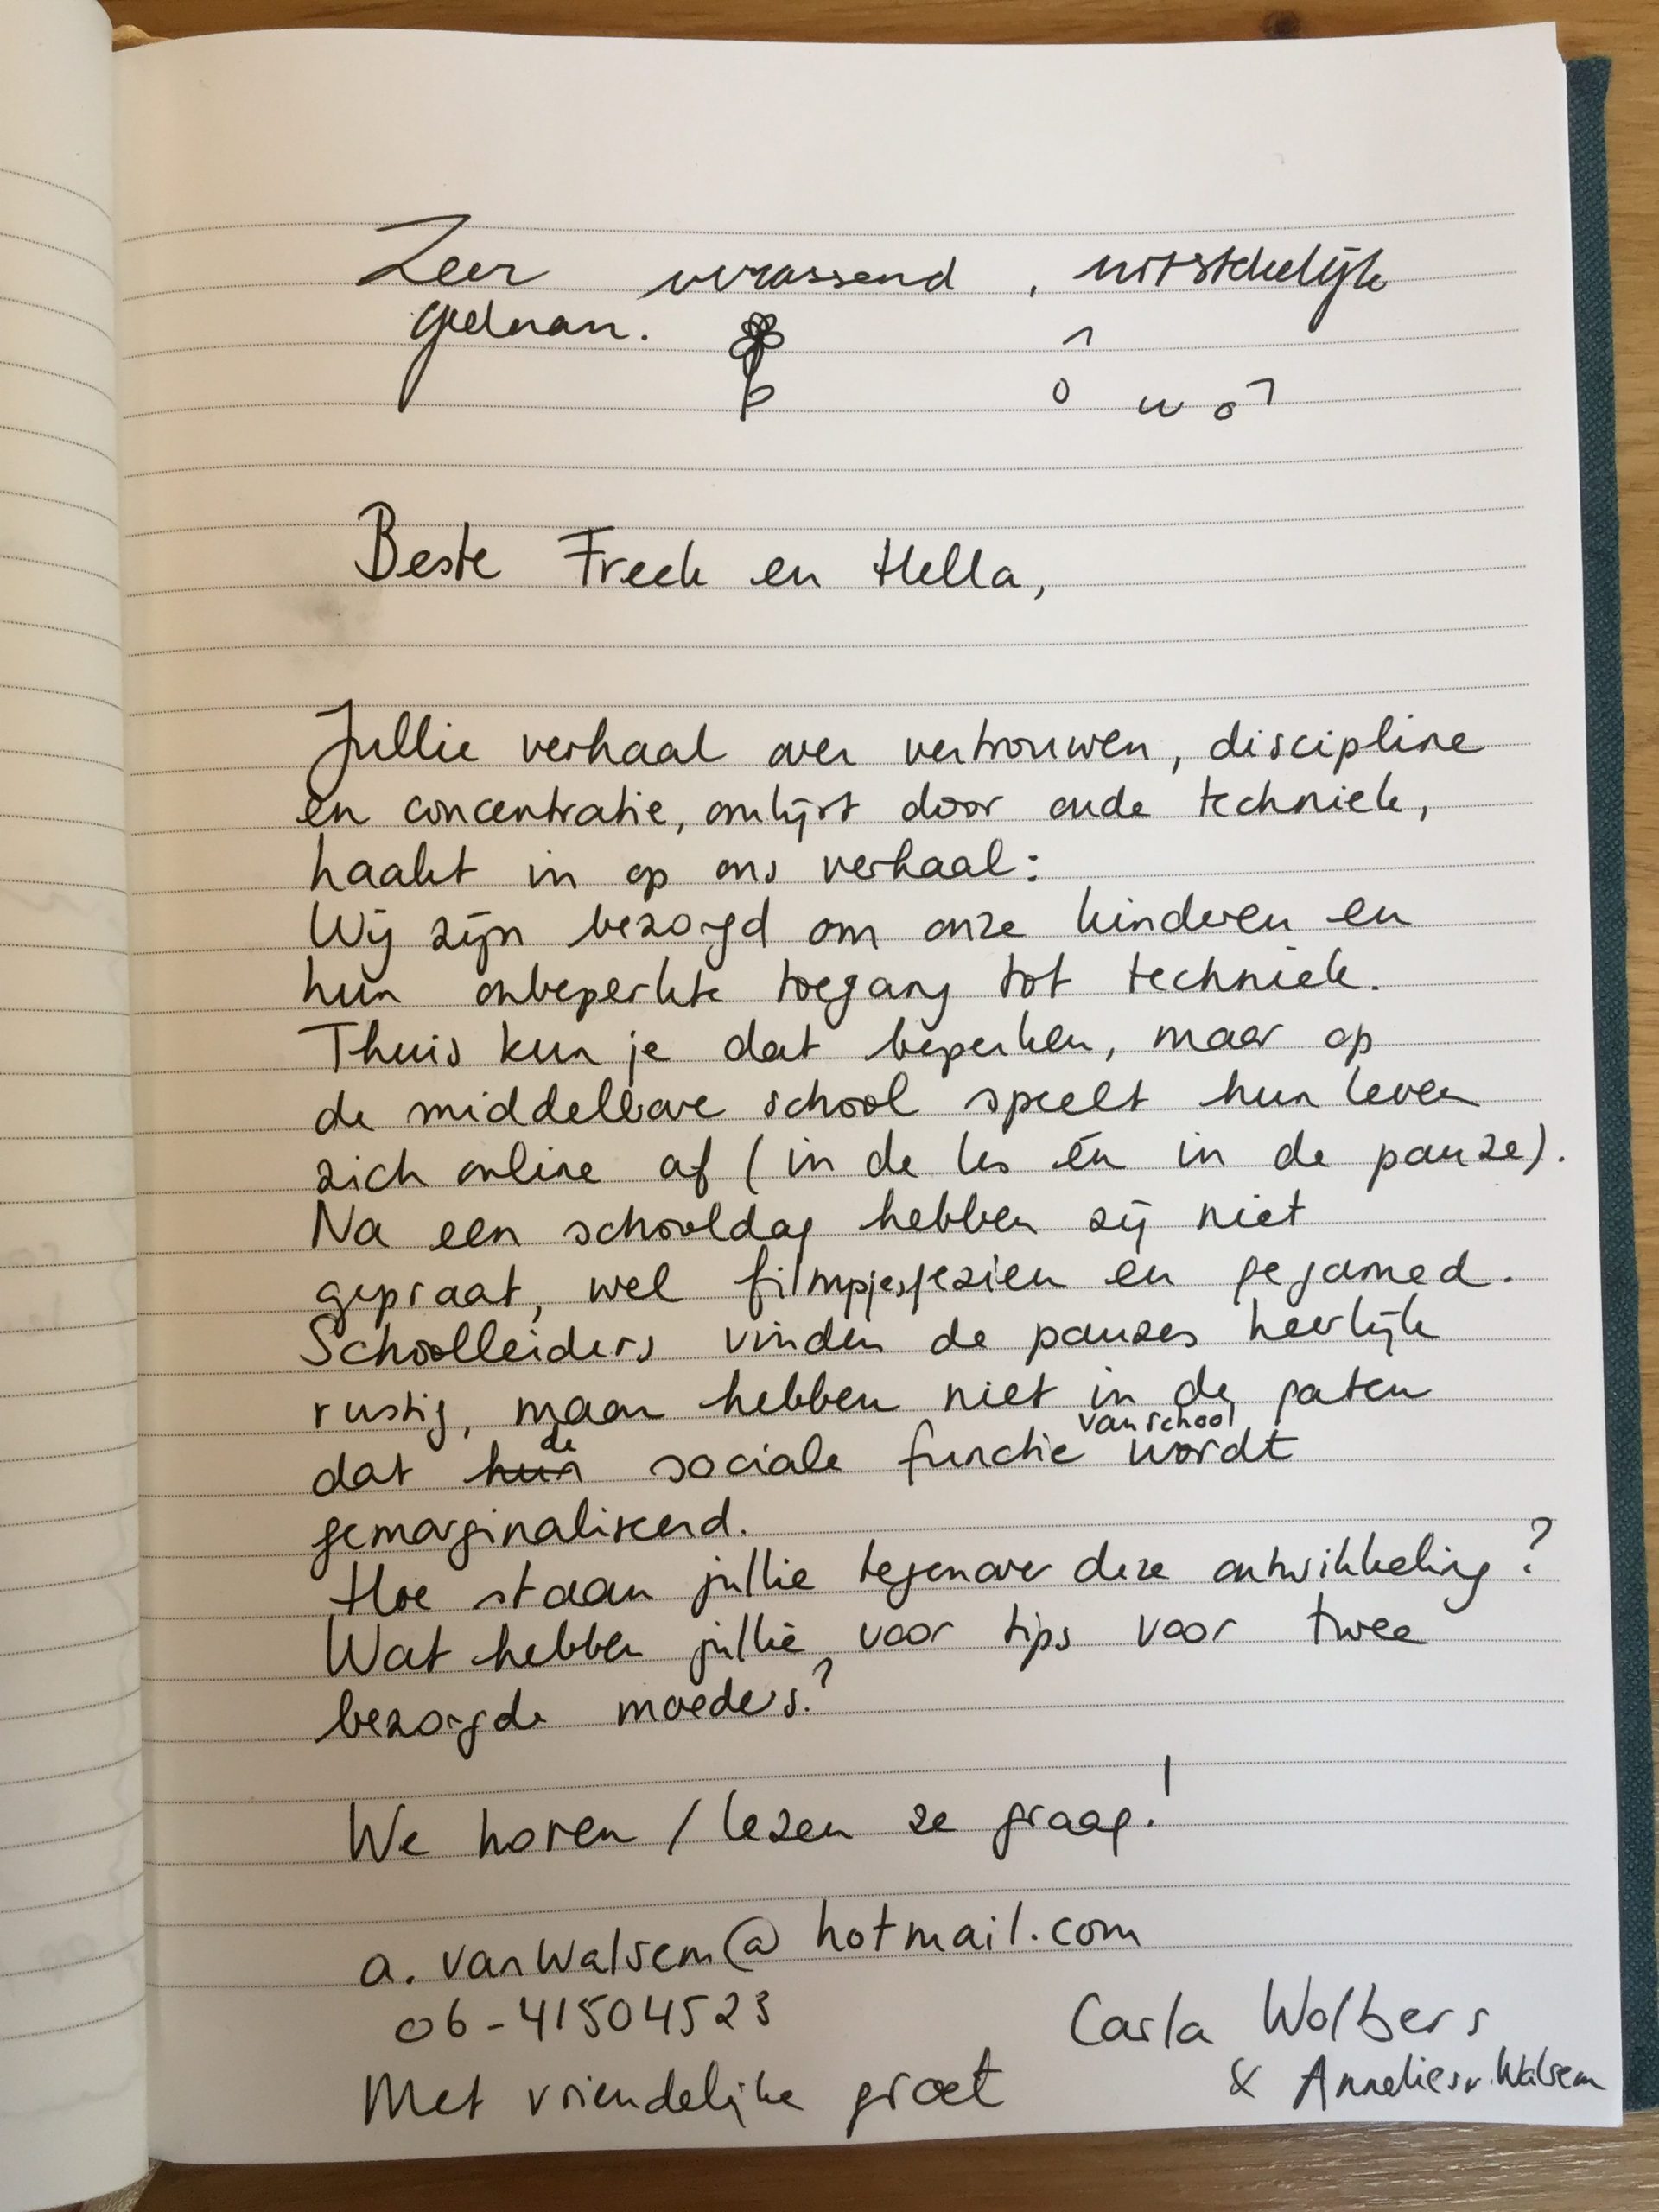 Zeer verassend, uitstekelijk
gedaan.
Beste Freek en Hella,
Jullie verhaal over vertrouwen, discipline
en concentratie, omlijst door oude techniek,
haakt in op ons verhaal:
Wij zijn bezorgd om onze kinderen en
hun onbeperkte toegang tot techniek.
Thuis kun je dat beperken, maar op
de middelbare school speelt hun leven
zich online af (in de les én in de pauze).
Na een schooldag hebben zij niet
gepraat, wel filmpjes gezien en gegamed.
Schoolleiders vinden de pauzes heerlijk
rustig, maar hebben niet in de gaten
dat hun de sociale functie van school wordt
gemarginaliseerd.
Hoe staan jullie tegenover deze ontwikkeling?
Wat hebben jullie voor tips voor twee
bezorgde moeders?
We horen / lezen ze graag!
a.vanWalsem@hotmail.com
06-41504523
Carla Wolbers
Met vriendelijke groet
& Annelies v. Walsem